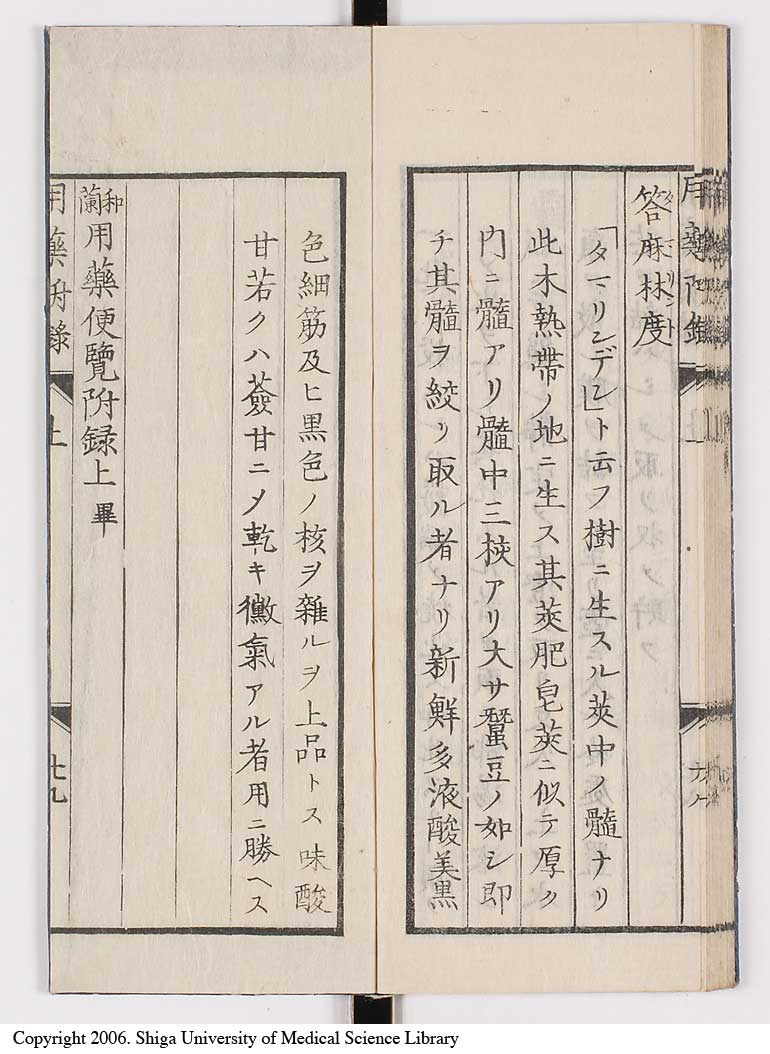 答麻林度
タマリンド
「タマリンデン」ト云フ樹ニ生スル莢中ノ髓ナリ
此木熱帶ノ地ニ生ス其莢肥皂莢ニ似テ厚ク
內ニ髓アリ髓中三核アリ大サ蠶豆ノ如シ即
チ其髓ヲ絞リ取ル者ナリ新鮮多液酸美黒
色細筋及ヒ黒色ノ核ヲ雜ルヲ上品トス味酸
甘若クハ薟甘ニメ乾キ黴氣アル者用ニ勝ヘス
和蘭用藥便覽附録上畢
用藥附録 上 七九
Copyright 2006. Shiga University of Medical Science Library